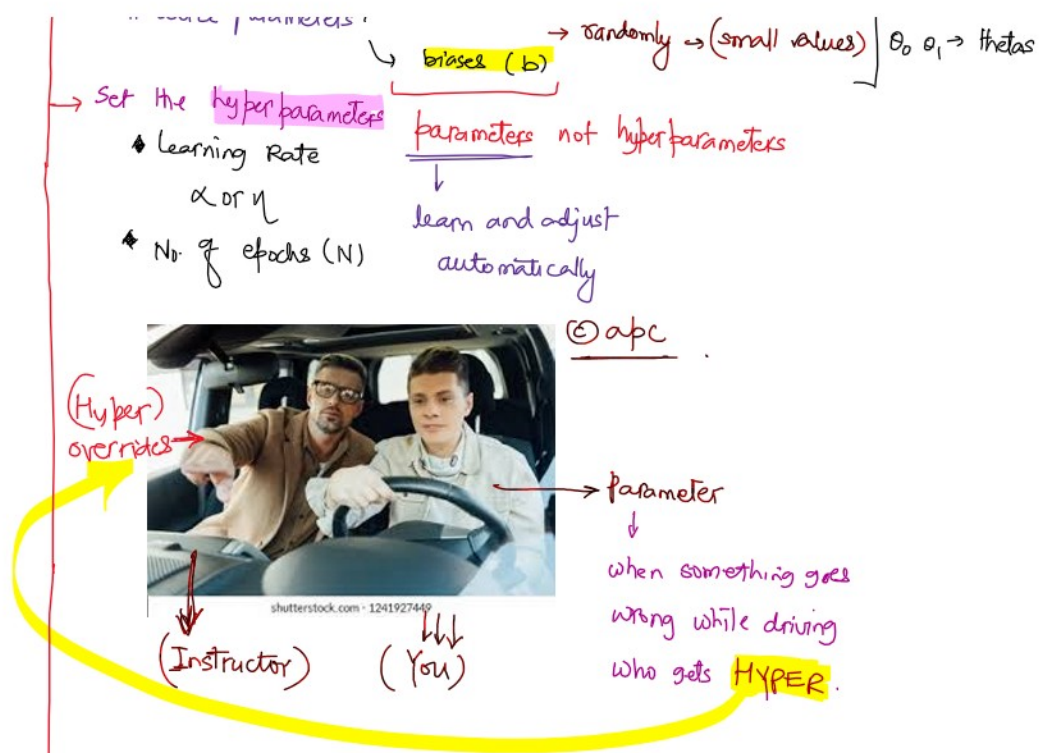 parameters
biases (b) → randomly → (small values) θ₀ θ₁ → thetas
→ Set the hyperparameters
parameters not hyperparameters
• Learning Rate
α or η
learn and adjust
automatically
• No. of epochs (N)
© apc
(Hyper)
overrides →
→ Parameter
when something goes
wrong while driving
who gets HYPER.
shutterstock.com · 1241927449
(Instructor) (You)